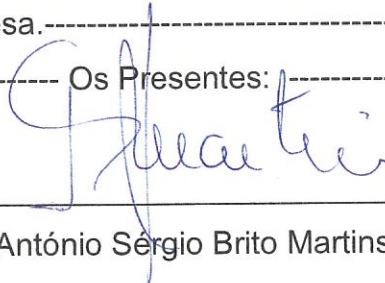 esa.--------------------------------
------ Os Presentes: ---------------
António Sérgio Brito Martins